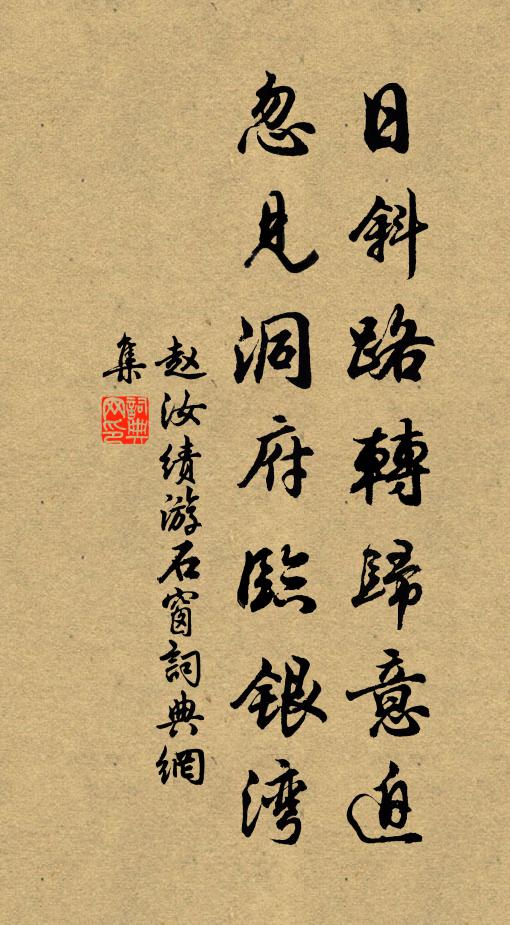 日斜路轉歸意迫
忽見洞府臨銀湾
赵汝绩游石窗詞典網
集
詞典
网印